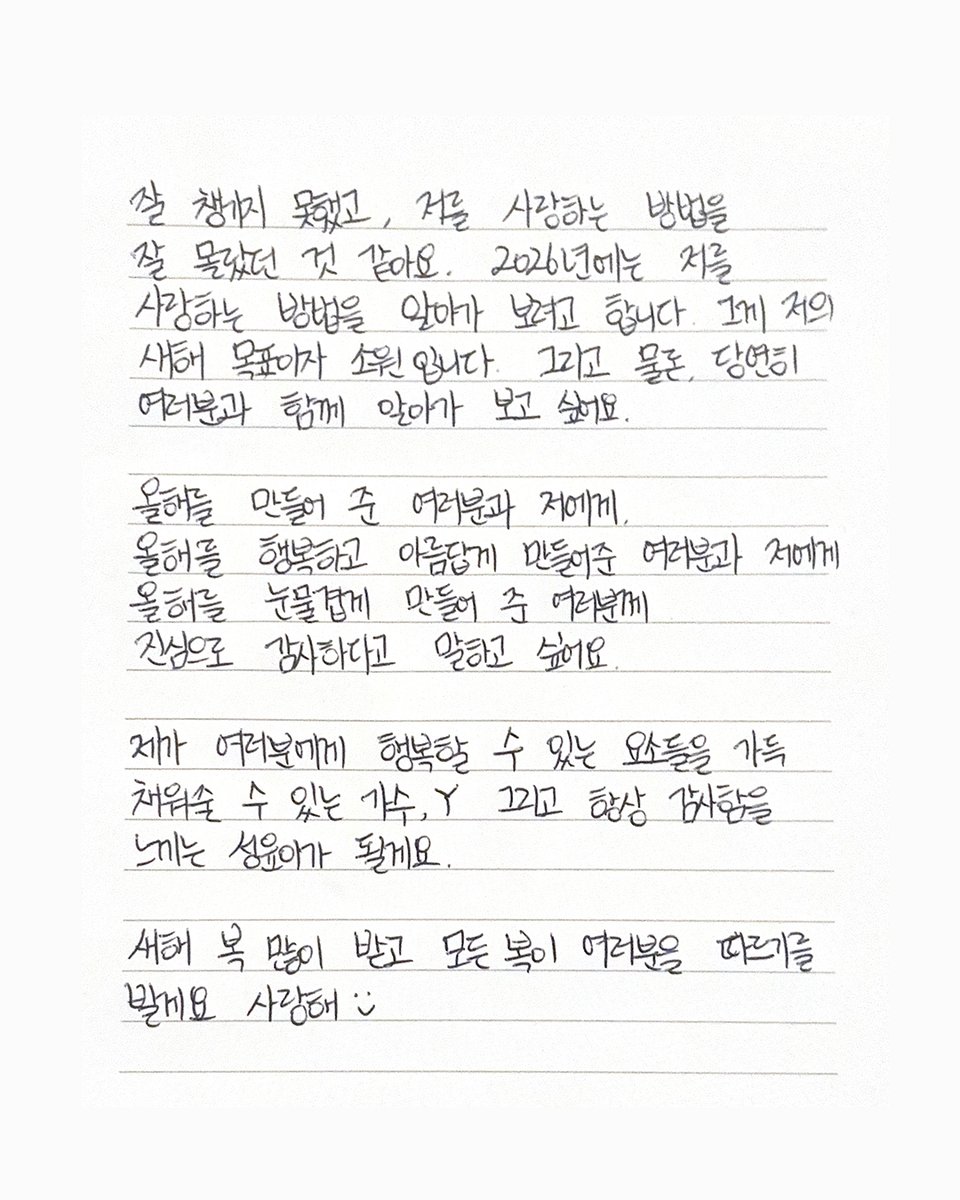 잘 챙기지 못했고, 저를 사랑하는 방법을
잘 몰랐던 것 같아요. 2026년에는 저를
사랑하는 방법을 알아가 보려고 합니다. 그게 저의
새해 목표이자 소원입니다. 그리고 물론, 당연히
여러분과 함께 알아가 보고 싶어요.
올해를 만들어 준 여러분과 저에게,
올해를 행복하고 아름답게 만들어준 여러분과 저에게
올해를 눈물겹게 만들어 준 여러분께
진심으로 감사하다고 말하고 싶어요.
제가 여러분에게 행복할 수 있는 요소들을 가득
채워줄 수 있는 가수, Y 그리고 항상 감사함을
느끼는 성윤이가 될게요.
새해 복 많이 받고 모든 복이 여러분을 따르기를
발게요 사랑해 :)